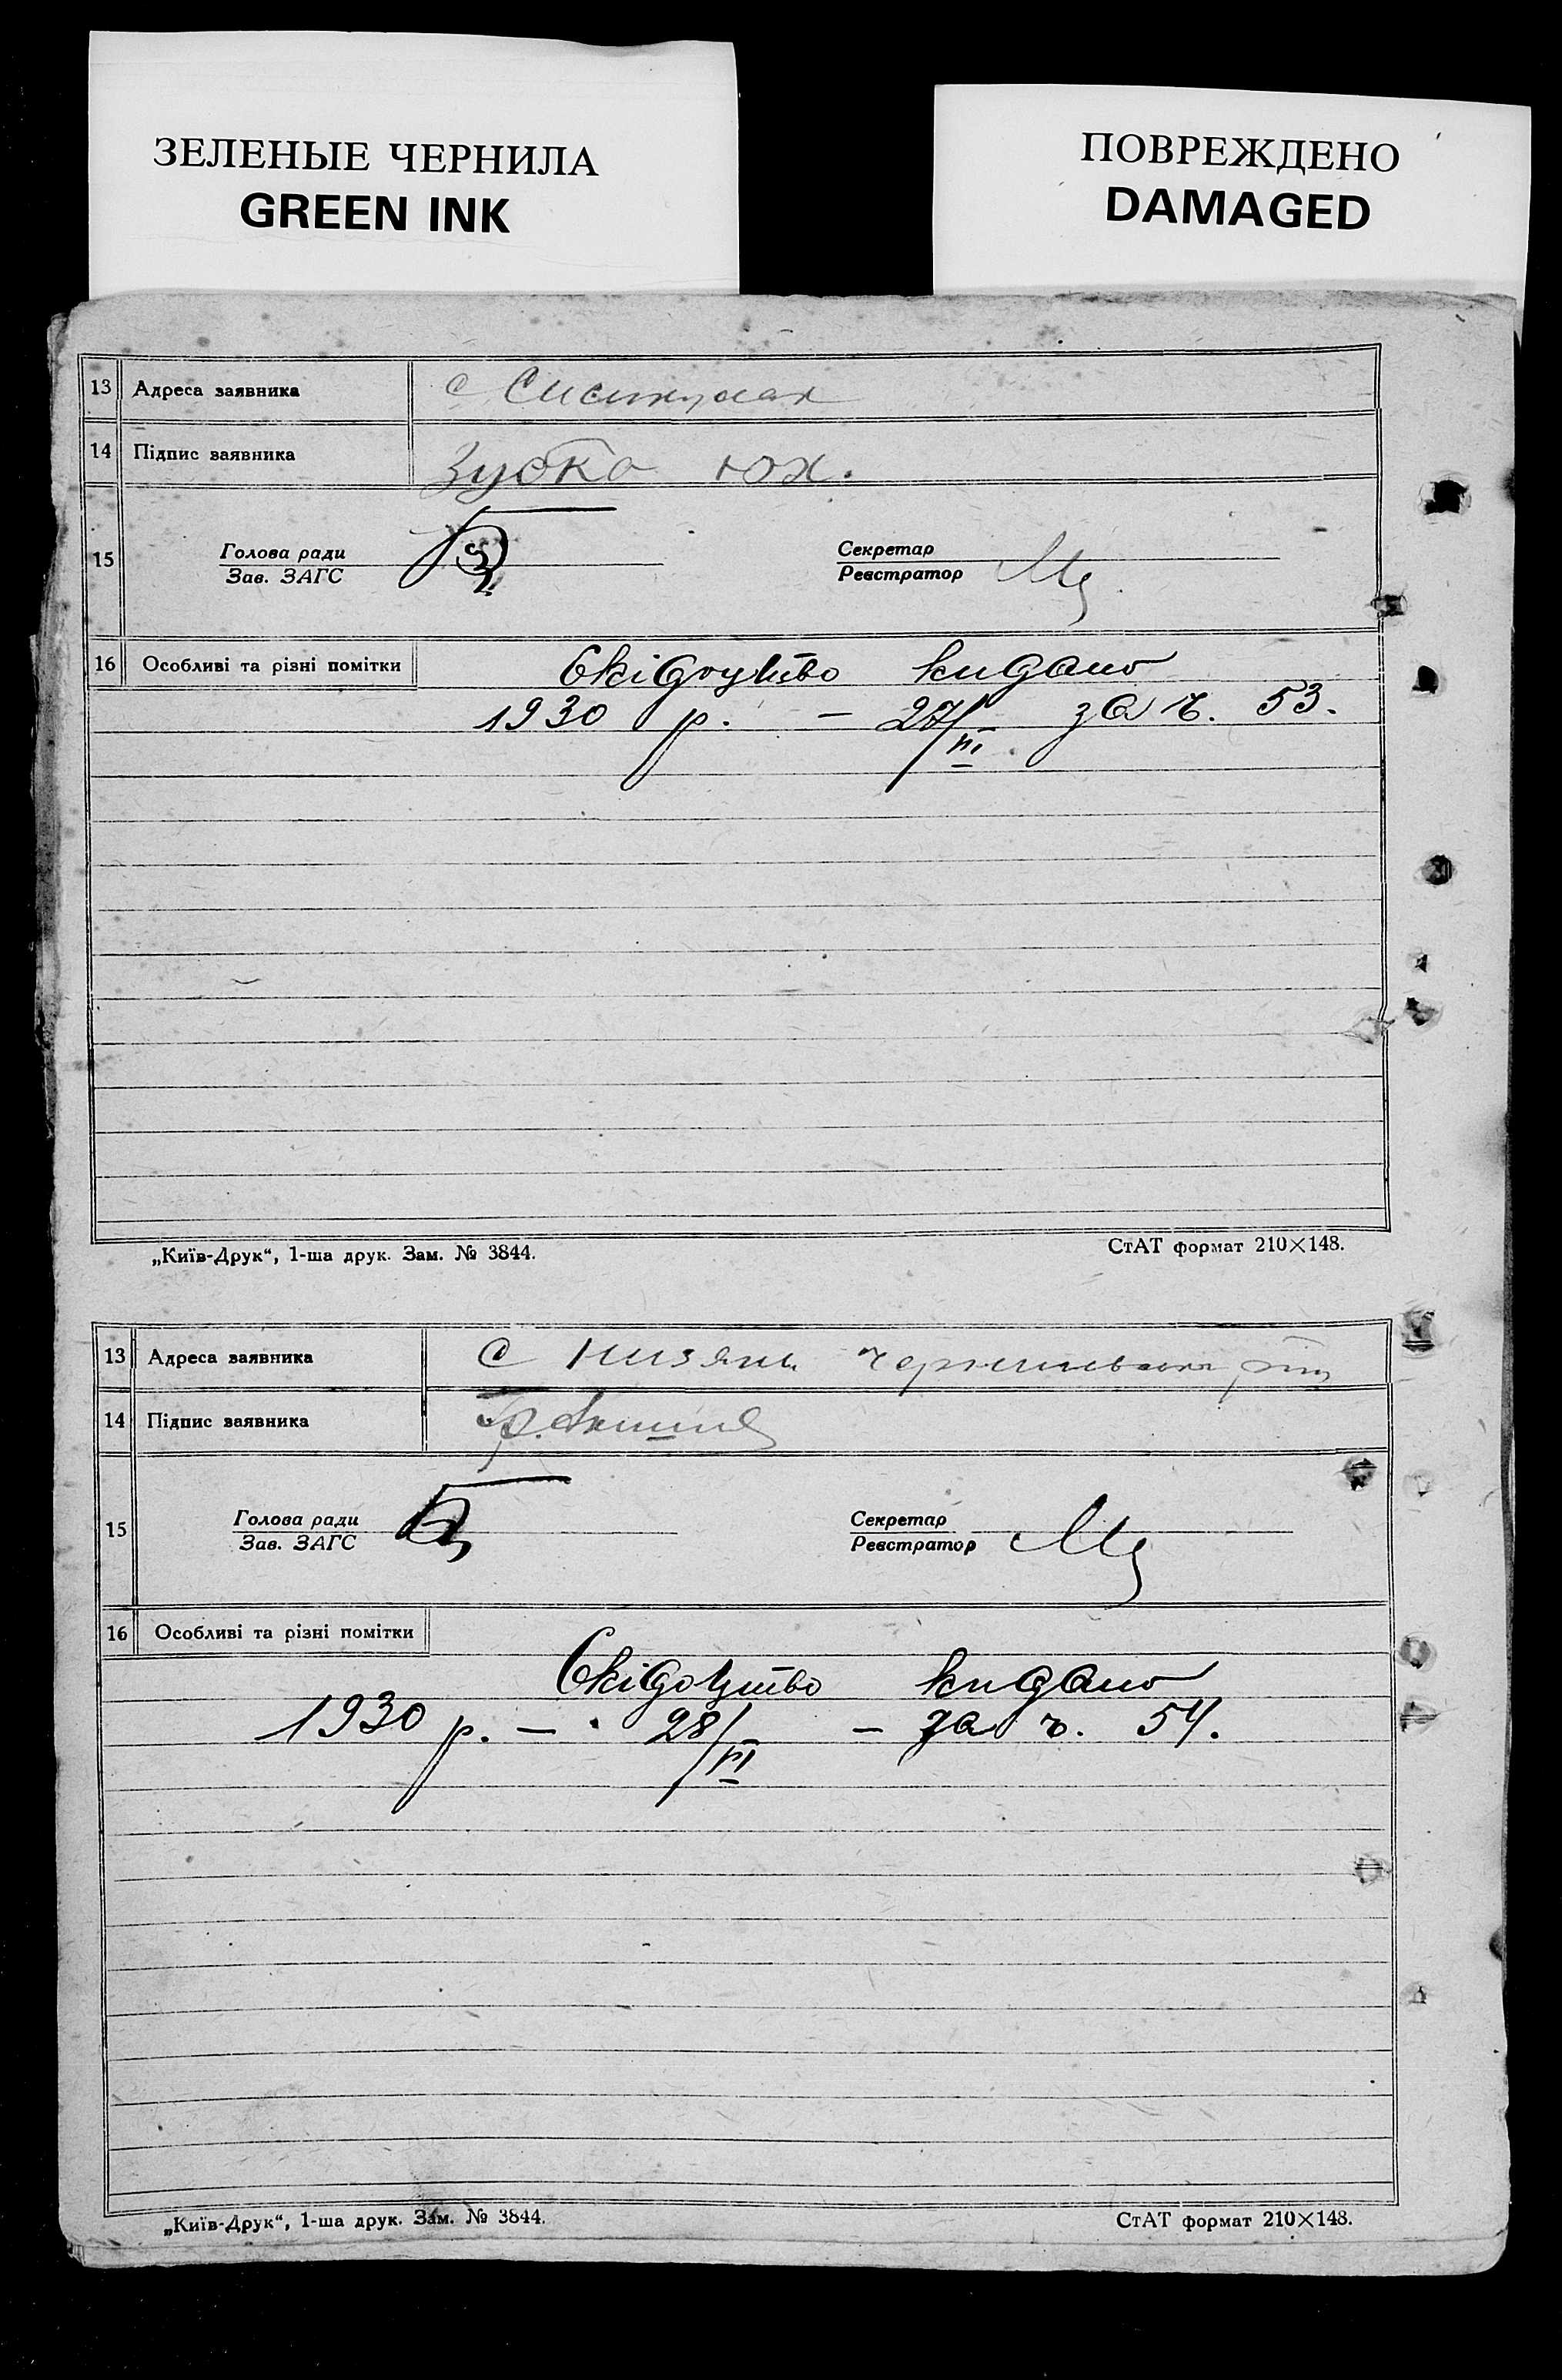 ЗЕЛЕНЫЕ ЧЕРНИЛА
GREEN INK
ПОВРЕЖДЕНО
DAMAGED
13 Адреса заявника с
14 Підпис заявника Зубко Юх.
15 Голова ради
Зав. ЗАГС
Секретар
Реєстратор
16 Особливі та різні помітки Свідоцтво видано
1930 р. — 27/VI за ч. 53.
„Київ-Друк“, 1-ша друк. Зам. № 3844. СтАТ формат 210×148.
13 Адреса заявника с
14 Підпис заявника
15 Голова ради
Зав. ЗАГС
Секретар
Реєстратор
16 Особливі та різні помітки
Свідоцтво видано
1930 р. — 28/VI — за ч. 54.
„Київ-Друк“, 1-ша друк. Зам. № 3844. СтАТ формат 210×148.